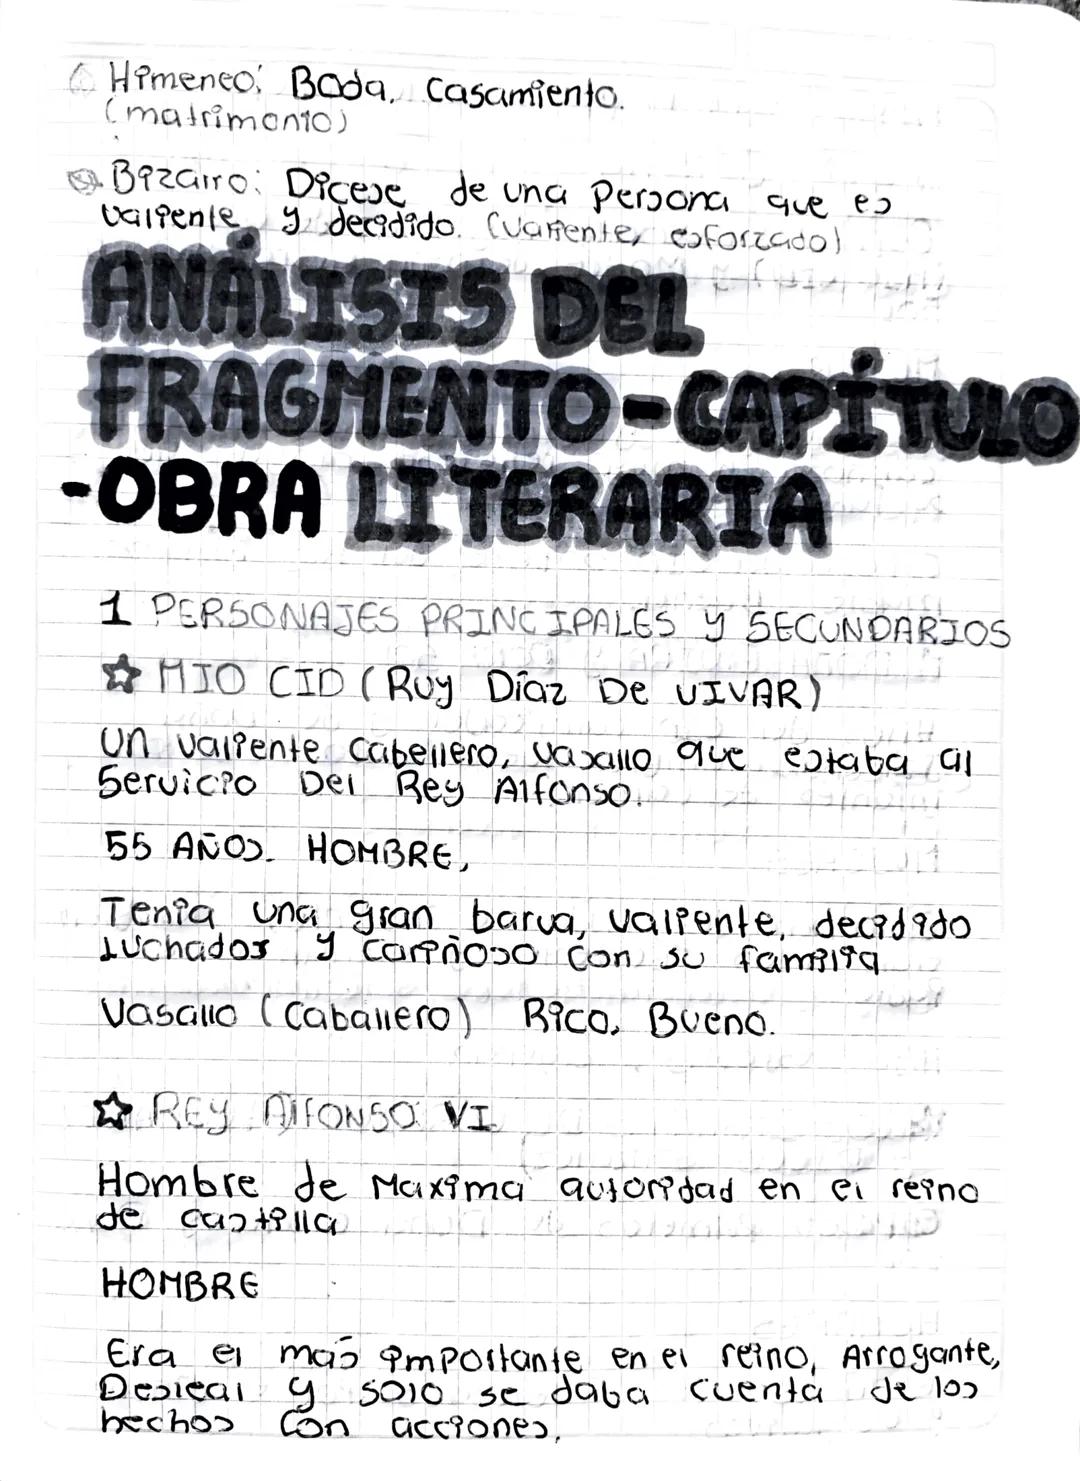 Himeneo: Boda, Casamiento.
(matrimonio)
Bizarro: Dícese de una persona que es
valiente y decidido. (valiente, esforzado)
ANÁLISIS DEL
FRAGMENTO-CAPÍTULO
-OBRA LITERARIA
1 PERSONAJES PRINCIPALES y SECUNDARIOS
☆ MIO CID (Ruy Díaz De VIVAR)
Un valiente cabellero, vasallo que estaba al
Servicio Del Rey Alfonso.
55 AÑOS. HOMBRE,
Tenia una gran barva, valiente, decidido
Luchados y cariñoso con su familia
Vasallo (Caballero) Rico, Bueno.
☆ REY AlFONSO VI
Hombre de Maxima autoridad en el reino
de castilla
HOMBRE
Era el mas importante en el reino, Arrogante,
Desleal y solo se daba cuenta de los
hechos con acciones.